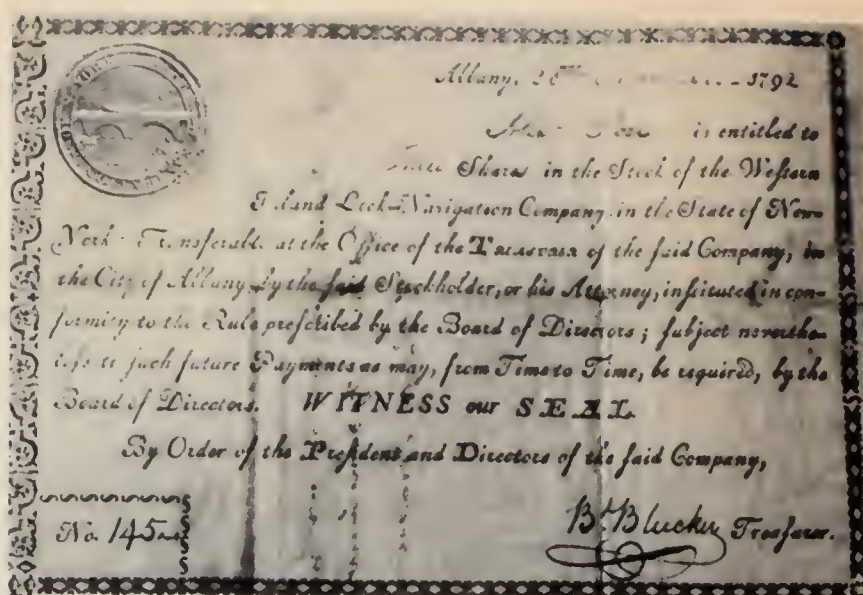 Albany, 28th 1792
is entitled to
Shares in the Stock of the Western
Inland Lock-Navigation Company, in the State of New-
York: Transferable at the Office of the Treasurer of the ſaid Company, in
the City of Albany, by the ſaid Stockholder, or his Attorney, inſtituted in con-
formity to the Rule preſcribed by the Board of Directors; ſubject neverthe-
leſs to ſuch future Payments as may, from Time to Time, be required, by the
Board of Directors. WITNESS our SEAL
By Order of the Preſident and Directors of the ſaid Company,
No. 145
B. Blucker Treaſurer.